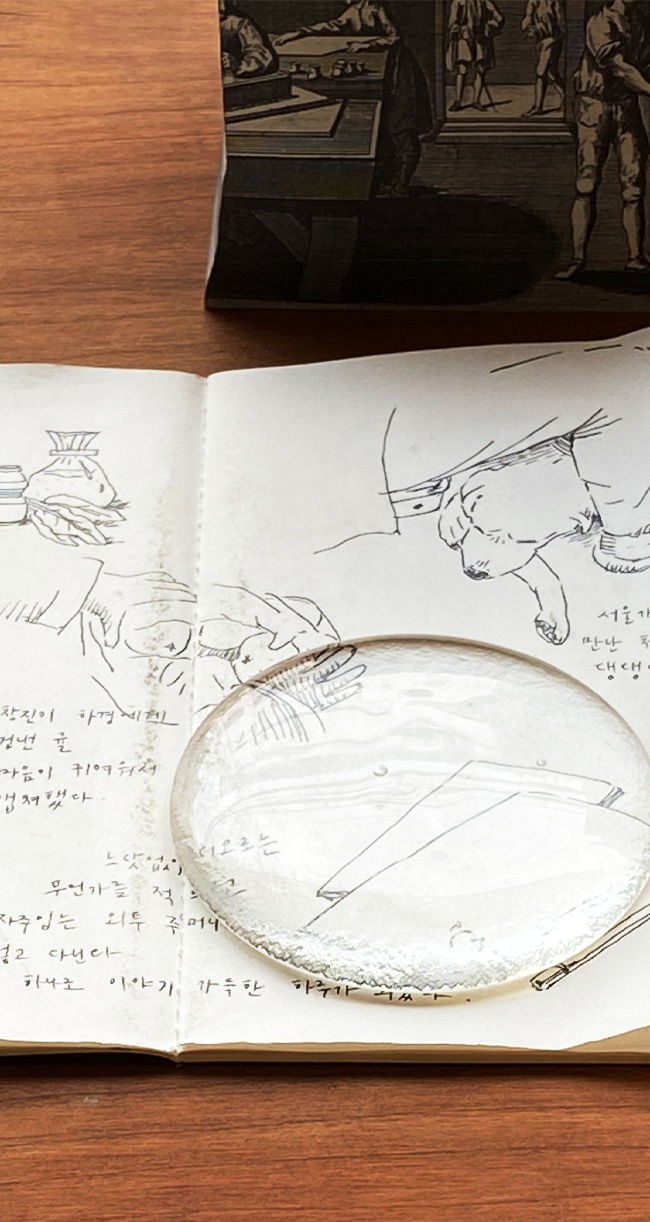 창진이 하경에게
건넨 귤
마음이 귀여워서
캡쳐했다.
느닷없이 떠오르는
무언가를 적
자주입는 외투 주머니
넣고 다닌다
하나로 이야기 가득한 하루가 되었다.
서울
만난
댕댕